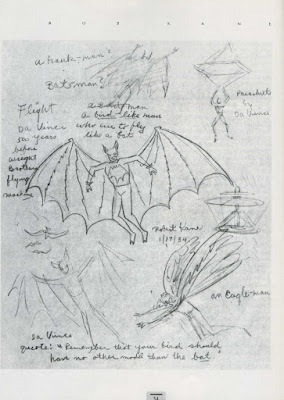 BOB KANE
a hawk-man?
Bat-man?
Flight
Da Vinci
50 years
before
wright
Brothers
flying
machine
a Robot man
a bird-like man
who use to fly
like a bat
Parachute
by
Da Vinci
Robert Kane
1/17/34
an Eagle-man
Da Vinci
quote: "Remember that your bird should
have no other model than the bat"